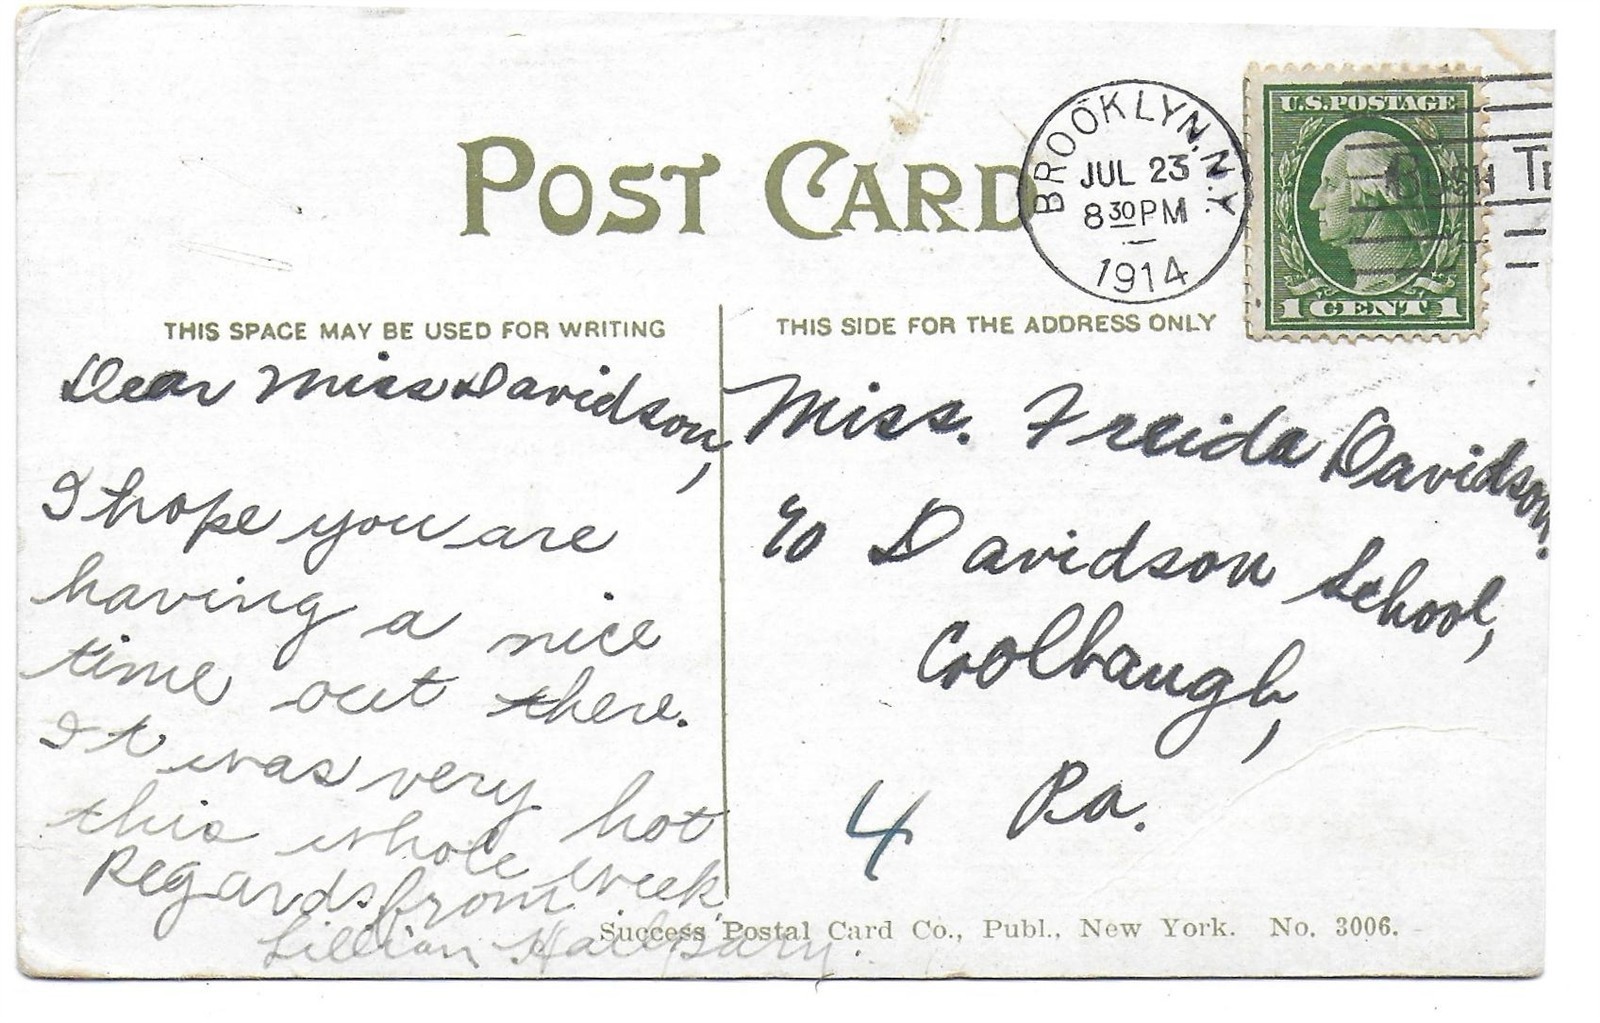 POST CARD
BROOKLYN, N.Y.
JUL 23
8 30 PM
1914
BUSH TE
U.S. POSTAGE
1 CENT 1
THIS SPACE MAY BE USED FOR WRITING
THIS SIDE FOR THE ADDRESS ONLY
Dear Miss Davidson,
I hope you are
having a nice
time out there.
It was very hot
this whole week.
Regards from
Lillian
Miss. Freida Davidson.
c/o Davidson School,
Coolbaugh,
Pa.
4
Success Postal Card Co., Publ., New York. No. 3006.